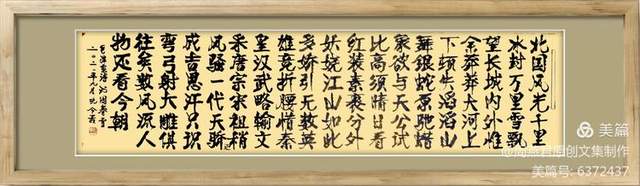 北国风光千里
冰封万里雪飘
望长城内外惟
余莽莽大河上
下顿失滔滔山
舞银蛇原驰蜡
象欲与天公试
比高须晴日看
红装素裹分外
妖娆江山如此
多娇引无数英
雄竞折腰惜秦
皇汉武略输文
采唐宗宋祖稍
风骚一代天骄
成吉思汗只识
弯弓射大雕俱
往矣数风流人
物还看今朝
沁园春雪
美篇
原创文集制作
美篇号: 6372437